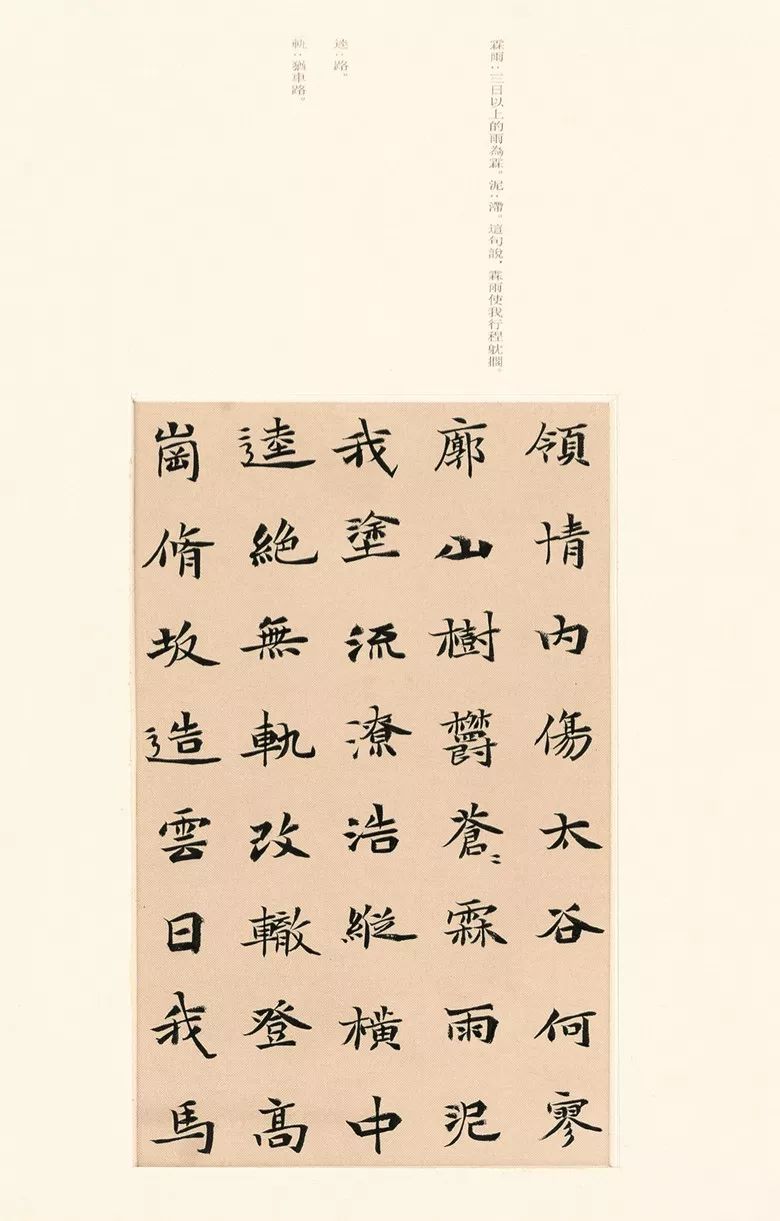 霖雨：三日以上的雨為霖。泥：滯。這句說，霖雨使我行程躭擱。
逵：路。
軌：猶車路。
領情內傷太谷何寥
廓山樹欝蒼〻霖雨泥
我塗流潦浩縱橫中
逵絕無軌改轍登高
崗脩坂造雲日我馬